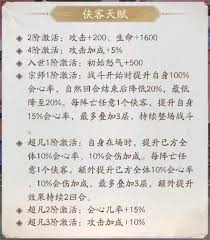 侠客天赋
• 2阶激活：攻击+200、生命+1600
• 4阶激活：攻击加成+5%
• 入世1阶激活：初始怒气+500
• 宗师1阶激活：战斗开始时提升自身100%
会心率，自然回合结束后降低20%，最低
降至20%。每阵亡任意1个侠客，提升自身
15%会心率，最多叠加3层，持续整场战
斗。
• 超凡1阶激活：自身在场时，提升己方全
体10%会心率、10%会伤加成。每阵亡任
意1个侠客，额外提升己方全体10%会心
率、10%会伤加成，最多叠加3层，额外提升
效果持续2回合。
• 超凡2阶激活：会心几率+15%
• 超凡3阶激活：攻击加成+10%